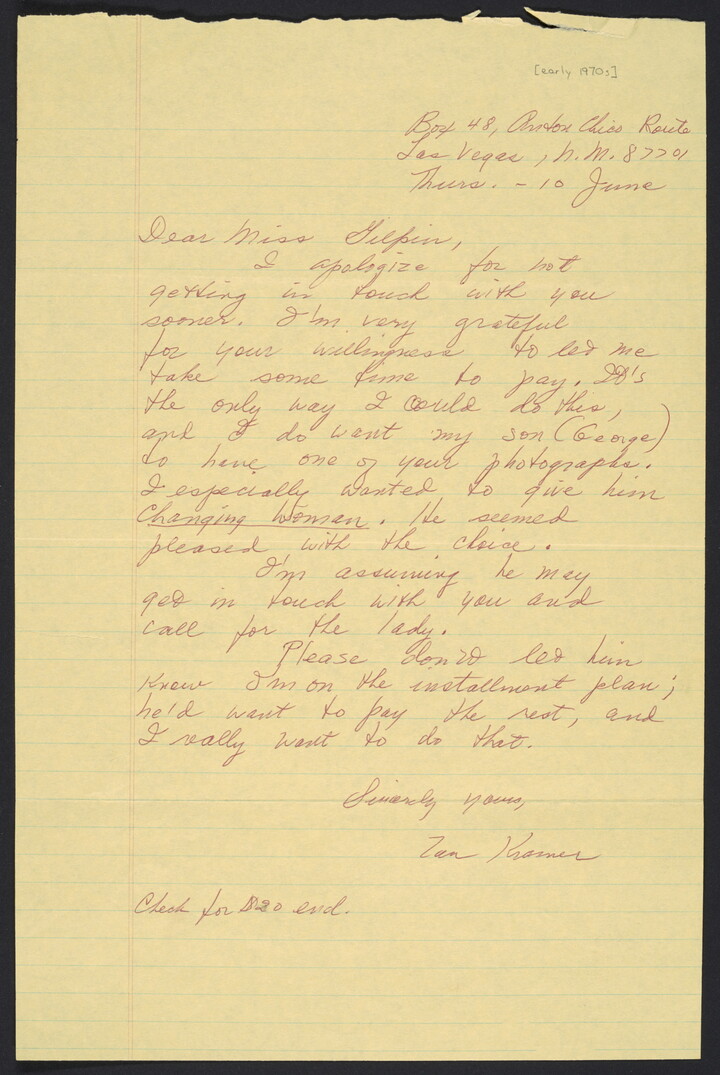 [early 1970s]
Box 48, Anton Chico Route
Las Vegas, N.M. 87701
Thurs. - 10 June
Dear Miss Gilpin,
I apologize for not
getting in touch with you
sooner. I'm very grateful
for your willingness to let me
take some time to pay. It's
the only way I could do this,
and I do want my son (George)
to have one of your photographs.
I especially wanted to give him
Changing Woman. He seemed
pleased with the choice.
I'm assuming he may
get in touch with you and
call for the lady.
Please don't let him
know I'm on the installment plan;
he'd want to pay the rest, and
I really want to do that.
Sincerely yours,
Kramer
Check for $20 encl.